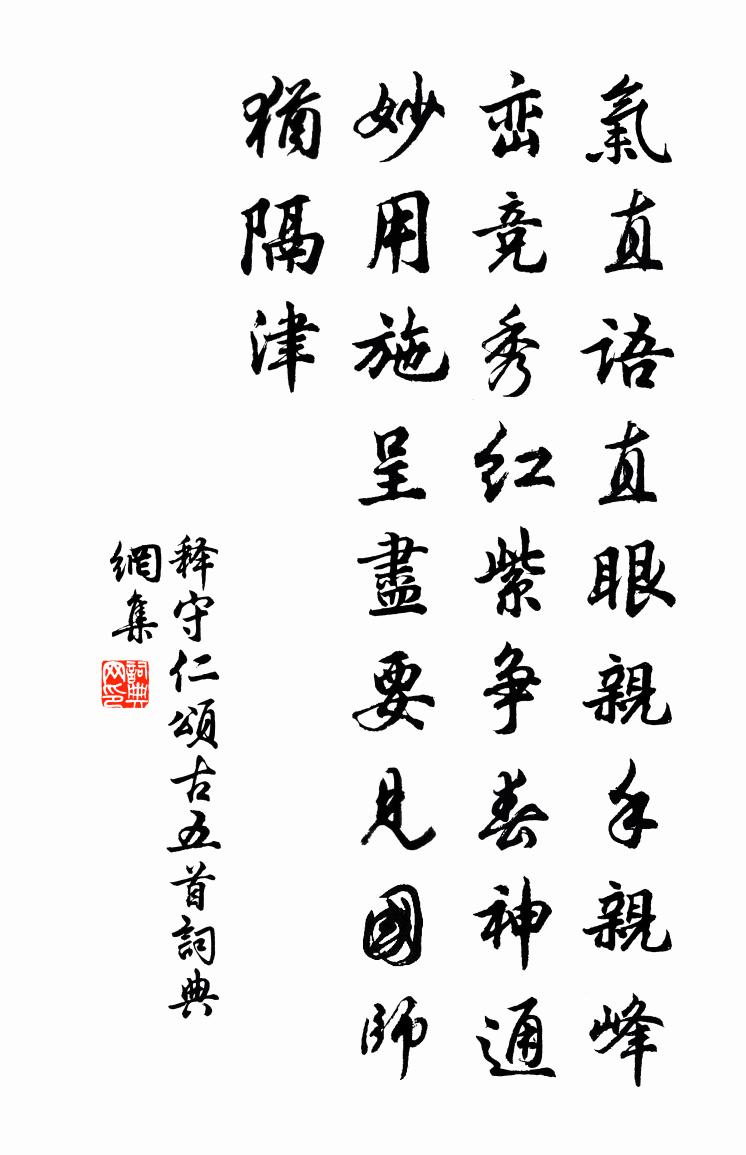 氣直語直眼親手親峰
巒競秀紅紫争春神通
妙用施呈盡要見國師
猶隔津
释守仁頌古五首詞典
網集
詞典
网印